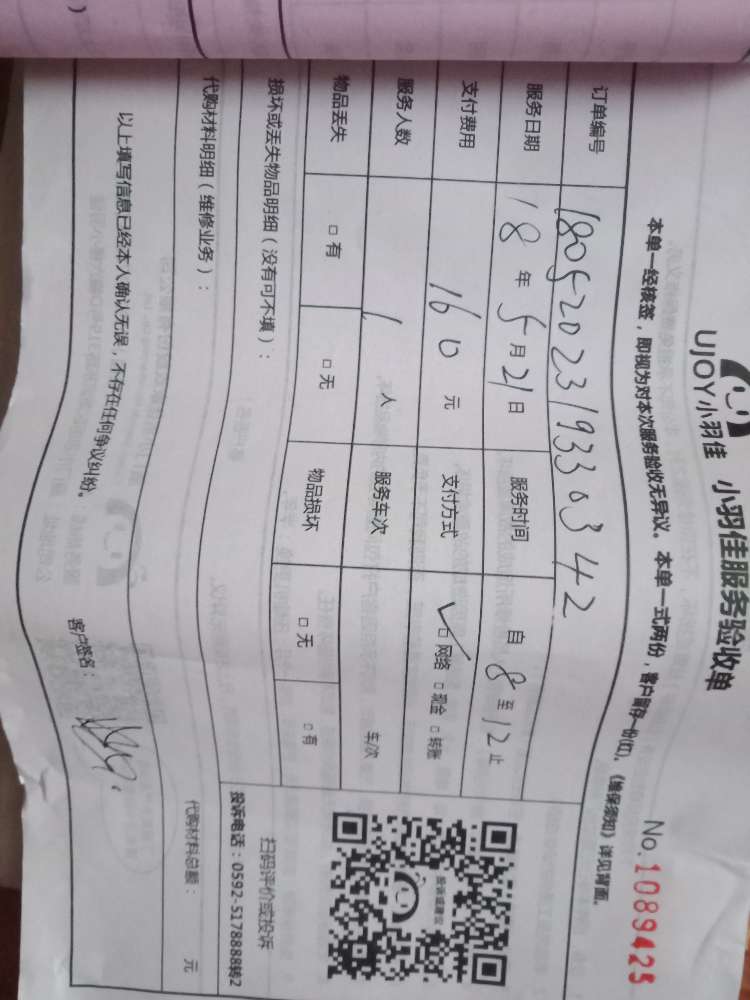 UJOY小羽佳 小羽佳服务验收单
No.1089425
本单一经核签，即视为对本次服务验收无异议。本单一式两份，客户留存一份(红)。《维保须知》详见背面。
订单编号 1805202319330342
服务日期 18年5月21日 服务时间 自8至12止
支付费用 160元 支付方式 ☑网络 □现金 □转账
服务人数 1人 服务车次 车/次
物品丢失 □有 □无 物品损坏 □无 □有
损坏或丢失物品明细（没有可不填）：
代购材料明细（维修业务）：
代购材料总额： 元
投诉或建议
扫码评价或投诉
投诉电话：0592-5178888转2
以上填写信息已经本人确认无误，不存在任何争议纠纷。
客户签名：